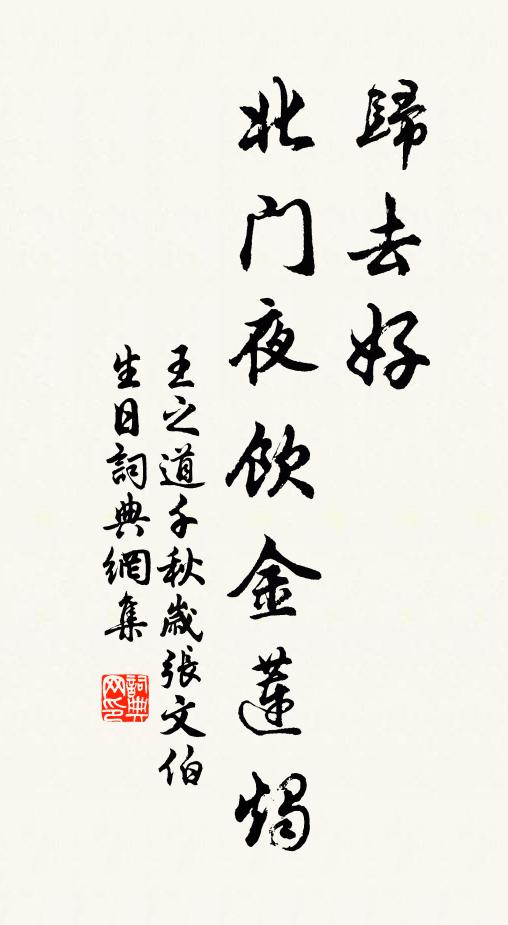 歸去好
北门夜饮金蓮燭
王之道千秋歲張文伯
生日詞典網集
詞典
网印